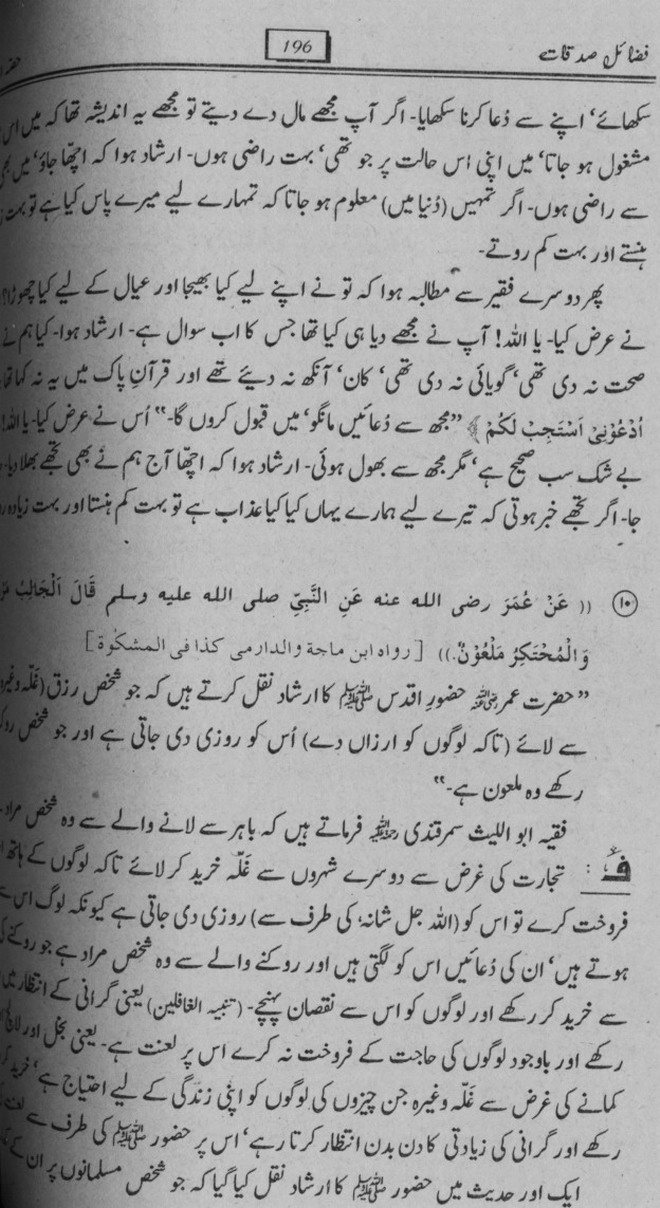 فضائل صدقات
196
سکھائے، اپنے سے دُعا کرنا سکھایا۔ اگر آپ مجھے مال دے دیتے تو مجھے یہ اندیشہ تھا کہ میں اس
مشغول ہو جاتا، میں اپنی اُس حالت پر جو تھی، بہت راضی ہوں۔ ارشاد ہوا کہ اچھا جاؤ، میں بھی
سے راضی ہوں۔ اگر تمہیں (دُنیا میں) معلوم ہو جاتا کہ تمہارے لیے میرے پاس کیا ہے تو بہت
ہنستے اور بہت کم روتے۔
پھر دوسرے فقیر سے مطالبہ ہوا کہ تو نے اپنے لیے کیا بھیجا اور عیال کے لیے کیا چھوڑا؟
نے عرض کیا۔ یا اللہ! آپ نے مجھے دیا ہی کیا تھا جس کا اب سوال ہے۔ ارشاد ہوا۔ کیا ہم نے
صحت نہ دی تھی، گویائی نہ دی تھی، کان، آنکھ نہ دیئے تھے اور قرآنِ پاک میں یہ نہ کہا تھا
اُدْعُوْنِیْٓ اَسْتَجِبْ لَکُمْ﴾ ”مجھ سے دُعائیں مانگو، میں قبول کروں گا۔“ اُس نے عرض کیا۔ یا اللہ!
بے شک سب صحیح ہے، مگر مجھ سے بھول ہوئی۔ ارشاد ہوا کہ اچھا آج ہم نے بھی تجھے بھلا دیا۔
جا۔ اگر تجھے خبر ہوتی کہ تیرے لیے ہمارے یہاں کیا کیا عذاب ہے تو بہت کم ہنستا اور بہت زیادہ
⑩ ((عَنْ عُمَرَ رضی الله عنه عَنِ النَّبِیِّ صلی الله علیه وسلم قَالَ اَلْجَالِبُ
وَالْمُحْتَکِرُ مَلْعُوْنٌ.)) [رواه ابن ماجة والدارمی کذا فی المشکوٰة]
”حضرت عمر رضی اللہ عنہ حضورِ اقدس ﷺ کا ارشاد نقل کرتے ہیں کہ جو شخص رزق (غلّہ وغیرہ
سے لائے (تاکہ لوگوں کو ارزاں دے) اُس کو روزی دی جاتی ہے اور جو شخص
رکھے وہ ملعون ہے۔“
ف: فقیہ ابو اللیث سمرقندی رحمۃ اللہ علیہ فرماتے ہیں کہ باہر سے لانے والے سے وہ شخص مراد
تجارت کی غرض سے دوسرے شہروں سے غلّہ خرید کر لائے تاکہ لوگوں کے ہاتھ
فروخت کرے تو اس کو (اللہ جل شانہٗ کی طرف سے) روزی دی جاتی ہے کیونکہ لوگ اس سے
ہوتے ہیں، ان کی دُعائیں اس کو لگتی ہیں اور روکنے والے سے وہ شخص مراد ہے جو روکنے کی
سے خرید کر رکھے اور لوگوں کو اس سے نقصان پہنچے۔ (تنبیہ الغافلین) یعنی گرانی کے انتظار میں
رکھے اور باوجود لوگوں کی حاجت کے فروخت نہ کرے اس پر لعنت ہے۔ یعنی بخل اور لالچ
کمانے کی غرض سے غلّہ وغیرہ جن چیزوں کی لوگوں کو اپنی زندگی کے لیے احتیاج ہے، خرید
رکھے اور گرانی کی زیادتی کا دن بدن انتظار کرتا رہے، اس پر حضور ﷺ کی طرف سے
ایک اور حدیث میں حضور ﷺ کا ارشاد نقل کیا گیا کہ جو شخص مسلمانوں پر ان کے